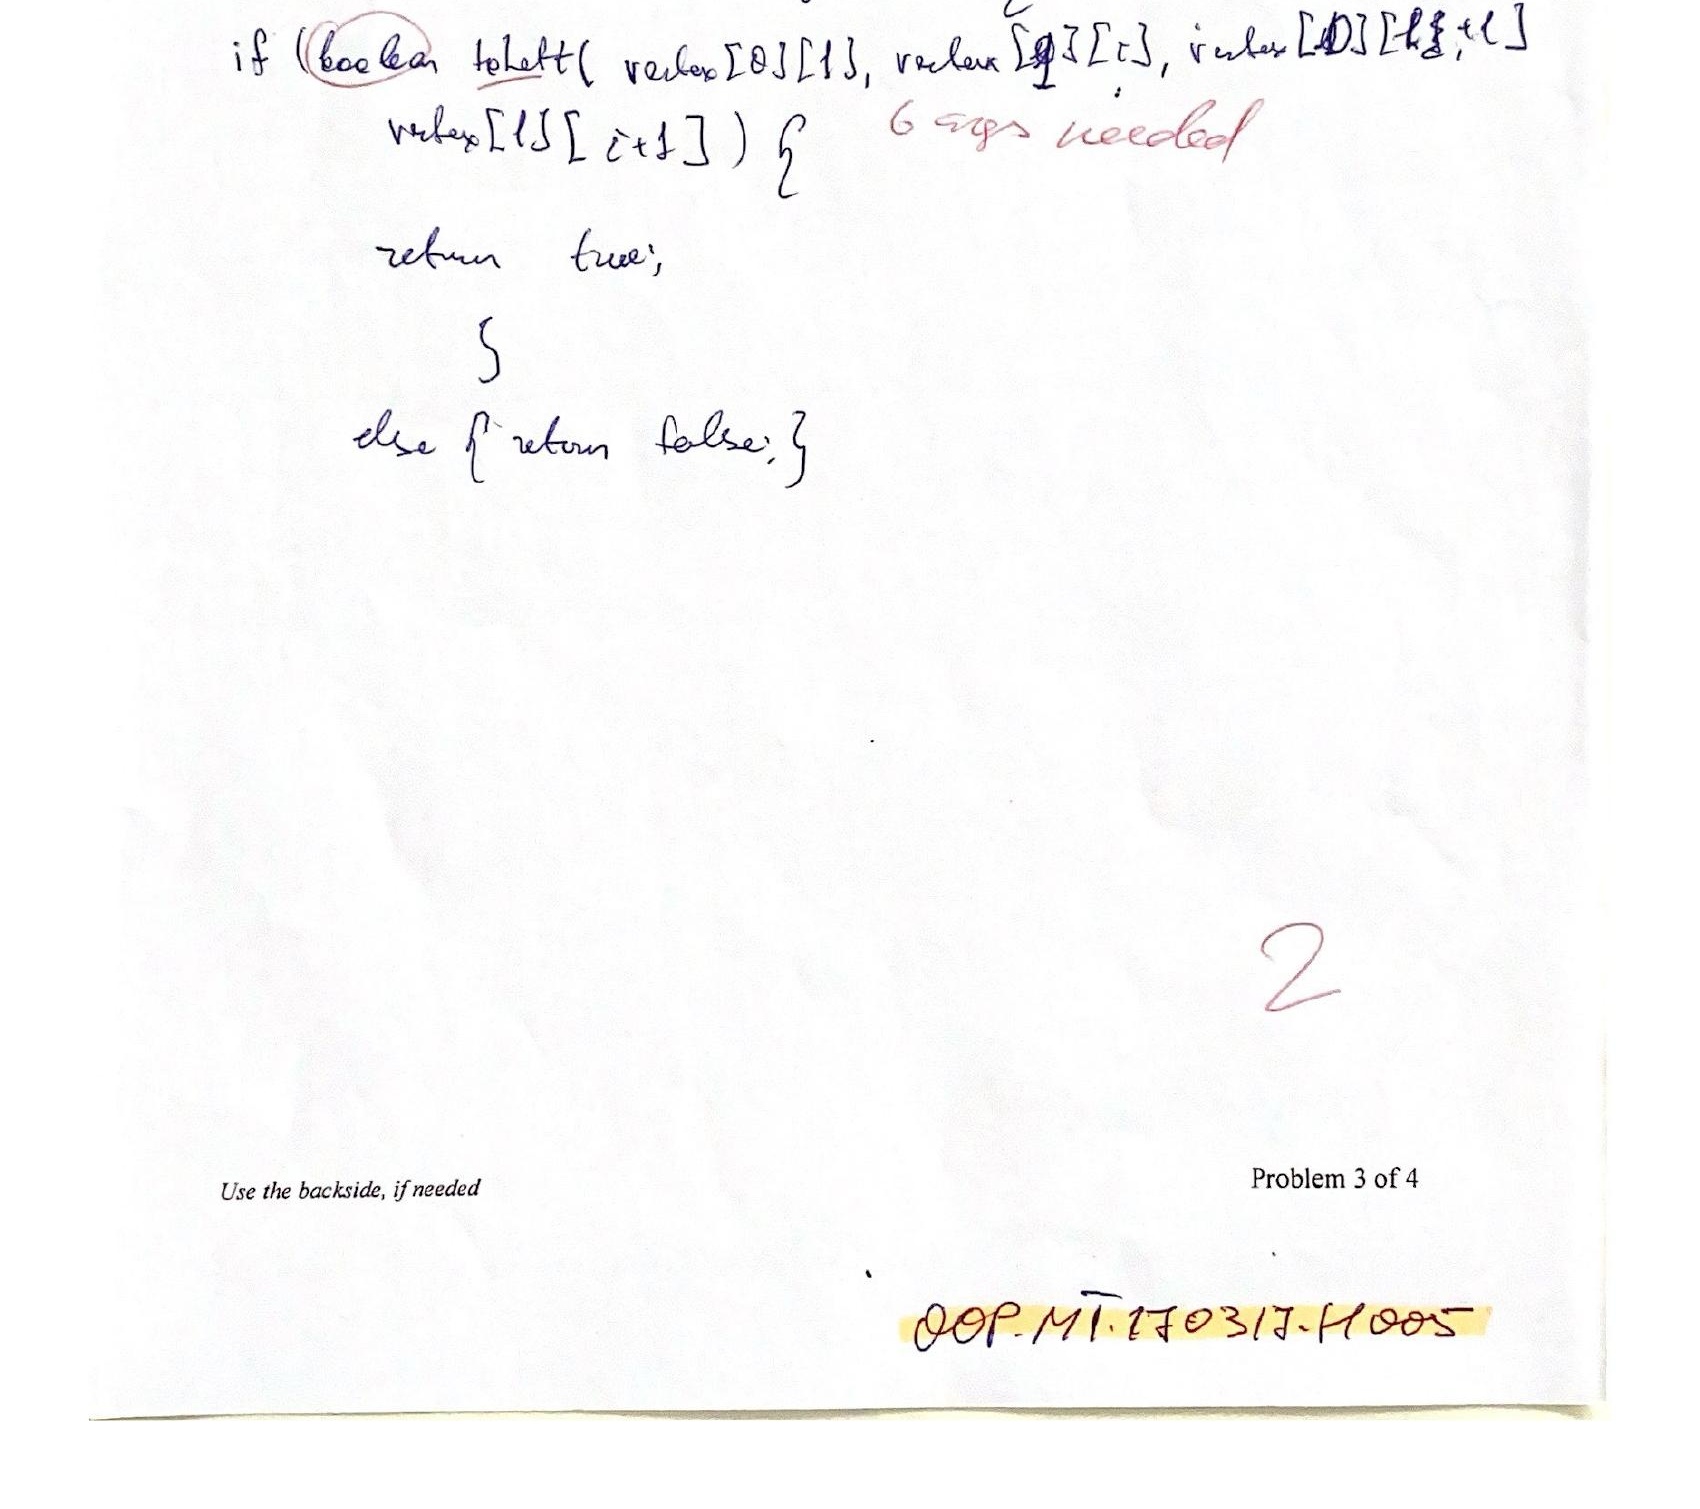 if (boolean toLeft( vertex[0][1], vertex[1][i], vertex[0][i+1]
vertex[1][i+1]) {
6 args needed
return true;
}
else { return false; }
2
Use the backside, if needed
Problem 3 of 4
OOP.MT.170317.H005